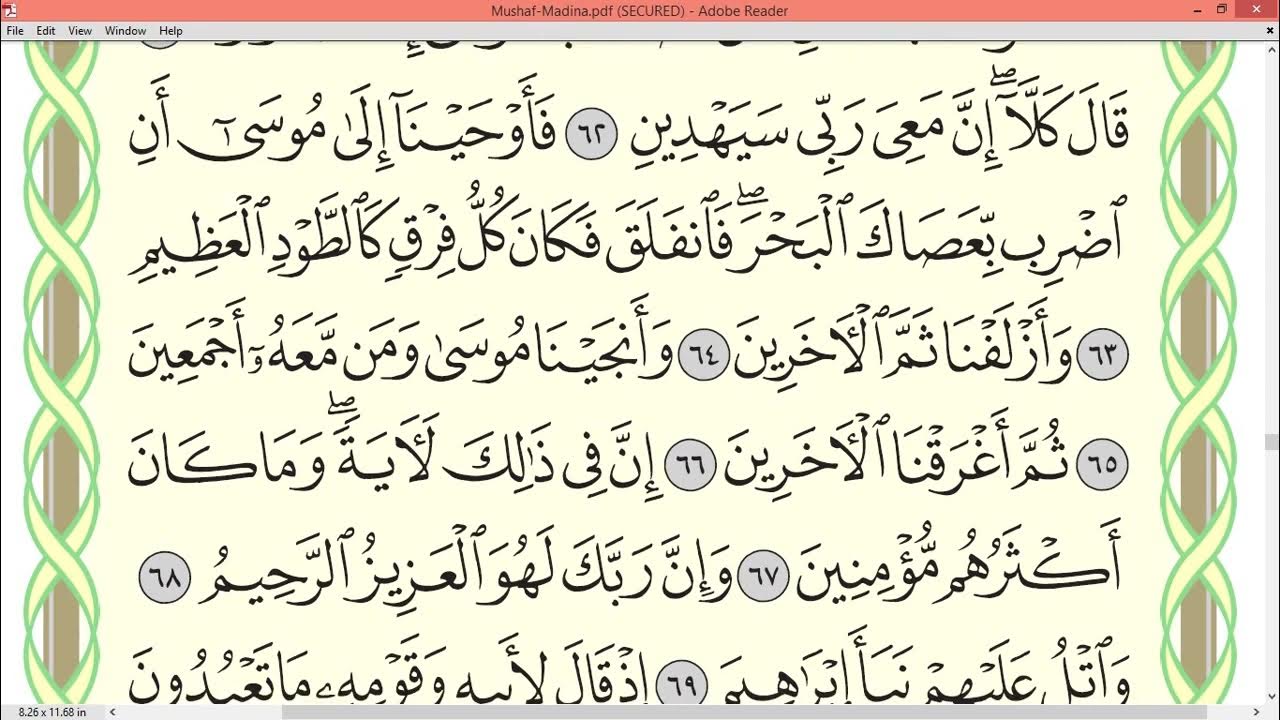 Mushaf-Madina.pdf (SECURED) - Adobe Reader
File Edit View Window Help
قَالَ كَلَّآۖ إِنَّ مَعِىَ رَبِّى سَيَهْدِينِ ٦٢ فَأَوْحَيْنَآ إِلَىٰ مُوسَىٰٓ أَنِ
ٱضْرِب بِّعَصَاكَ ٱلْبَحْرَۖ فَٱنفَلَقَ فَكَانَ كُلُّ فِرْقٍ كَٱلطَّوْدِ ٱلْعَظِيمِ
٦٣ وَأَزْلَفْنَا ثَمَّ ٱلْـَٔاخَرِينَ ٦٤ وَأَنجَيْنَا مُوسَىٰ وَمَن مَّعَهُۥٓ أَجْمَعِينَ
٦٥ ثُمَّ أَغْرَقْنَا ٱلْـَٔاخَرِينَ ٦٦ إِنَّ فِى ذَٰلِكَ لَـَٔايَةًۖ وَمَا كَانَ
أَكْثَرُهُم مُّؤْمِنِينَ ٦٧ وَإِنَّ رَبَّكَ لَهُوَ ٱلْعَزِيزُ ٱلرَّحِيمُ ٦٨
وَٱتْلُ عَلَيْهِمْ نَبَأَ إِبْرَٰهِيمَ ٦٩ إِذْ قَالَ لِأَبِيهِ وَقَوْمِهِۦ مَا تَعْبُدُونَ
8.26 x 11.68 in